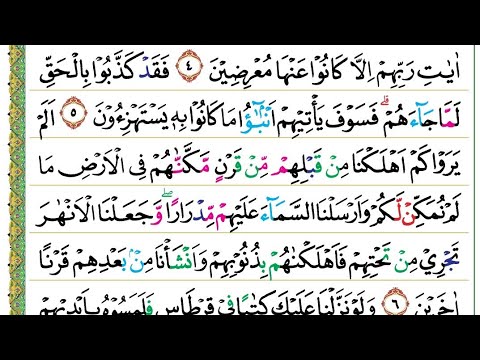 اٰيٰتِ رَبِّهِمْ اِلَّا كَانُوْا عَنْهَا مُعْرِضِيْنَ ۝٤ فَقَدْ كَذَّبُوْا بِالْحَقِّ
لَمَّا جَآءَهُمْ ؕ فَسَوْفَ يَأْتِيْهِمْ اَنْۢبٰٓؤُا مَا كَانُوْا بِهٖ يَسْتَهْزِءُوْنَ ۝٥ اَلَمْ
يَرَوْا كَمْ اَهْلَكْنَا مِنْ قَبْلِهِمْ مِّنْ قَرْنٍ مَّكَّنّٰهُمْ فِى الْاَرْضِ مَا
لَمْ نُمَكِّنْ لَّكُمْ وَاَرْسَلْنَا السَّمَآءَ عَلَيْهِمْ مِّدْرَارًا ۖ وَّجَعَلْنَا الْاَنْهٰرَ
تَجْرِيْ مِنْ تَحْتِهِمْ فَاَهْلَكْنٰهُمْ بِذُنُوْبِهِمْ وَاَنْشَأْنَا مِنْۢ بَعْدِهِمْ قَرْنًا
اٰخَرِيْنَ ۝٦ وَلَوْ نَزَّلْنَا عَلَيْكَ كِتٰبًا فِيْ قِرْطَاسٍ فَلَمَسُوْهُ بِاَيْدِيْهِمْ